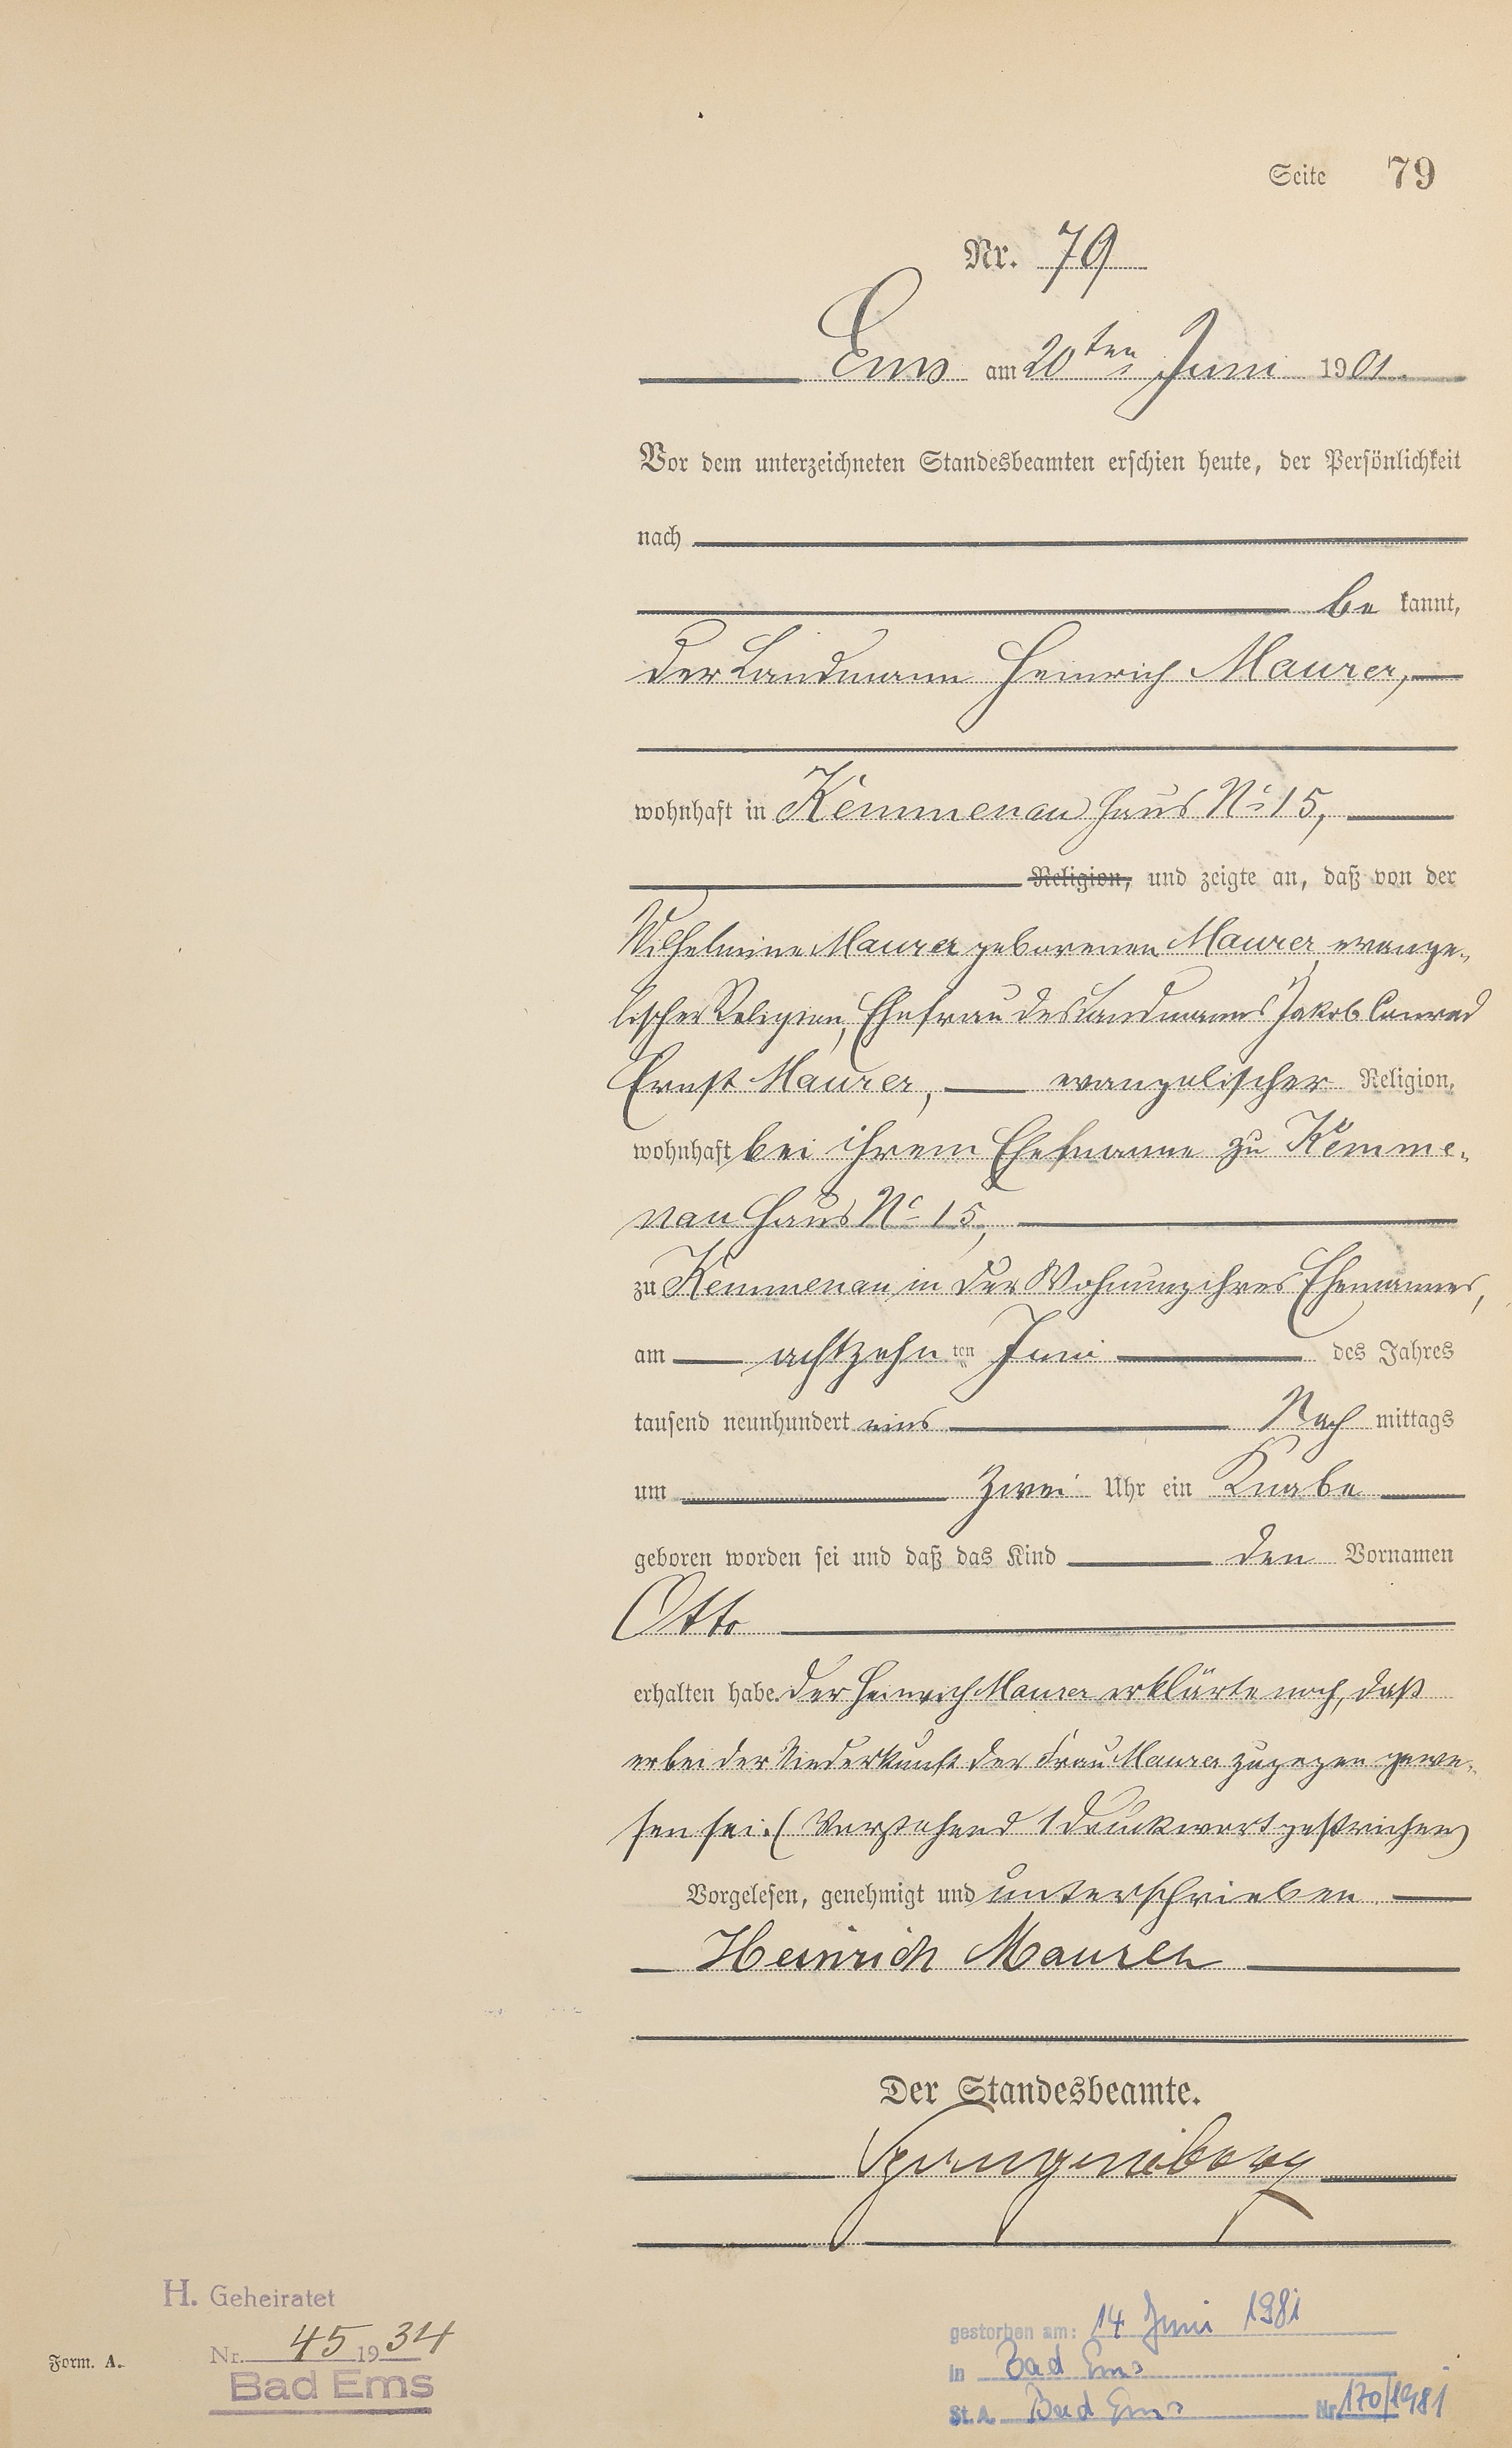 Seite 79
Nr. 79
Ems am 20ten Juni 1901.
Vor dem unterzeichneten Standesbeamten erschien heute, der Persönlichkeit
nach
be kannt,
der Landmann Heinrich Maurer,
wohnhaft in Kemmenau Haus No 15,
Religion, und zeigte an, daß von der
Wilhelmine Maurer geborenen Maurer, evange-
lischer Religion, Ehefrau des Landmanns Jakob Conrad
Ernst Maurer, evangelischer Religion,
wohnhaft bei ihrem Ehemanne zu Kemme-
nau Haus No 15,
zu Kemmenau in der Wohnung ihres Ehemannes,
am achtzehn ten Juni des Jahres
tausend neunhundert eins Nach mittags
um zwei Uhr ein Knabe
geboren worden sei und daß das Kind den Vornamen
Otto
erhalten habe. Der Heinrich Maurer erklärte noch, daß
er bei der Niederkunft der Frau Maurer zugegen gewe-
sen sei. (Vorstehend 1 Druckwort gestrichen)
Vorgelesen, genehmigt und unterschrieben
Heinrich Maurer
Der Standesbeamte.
H. Geheiratet
Nr. 45 1934
Bad Ems
Form. A.
gestorben am: 14 Juni 1981
in Bad Ems
St. A. Bad Ems Nr. 170/1981